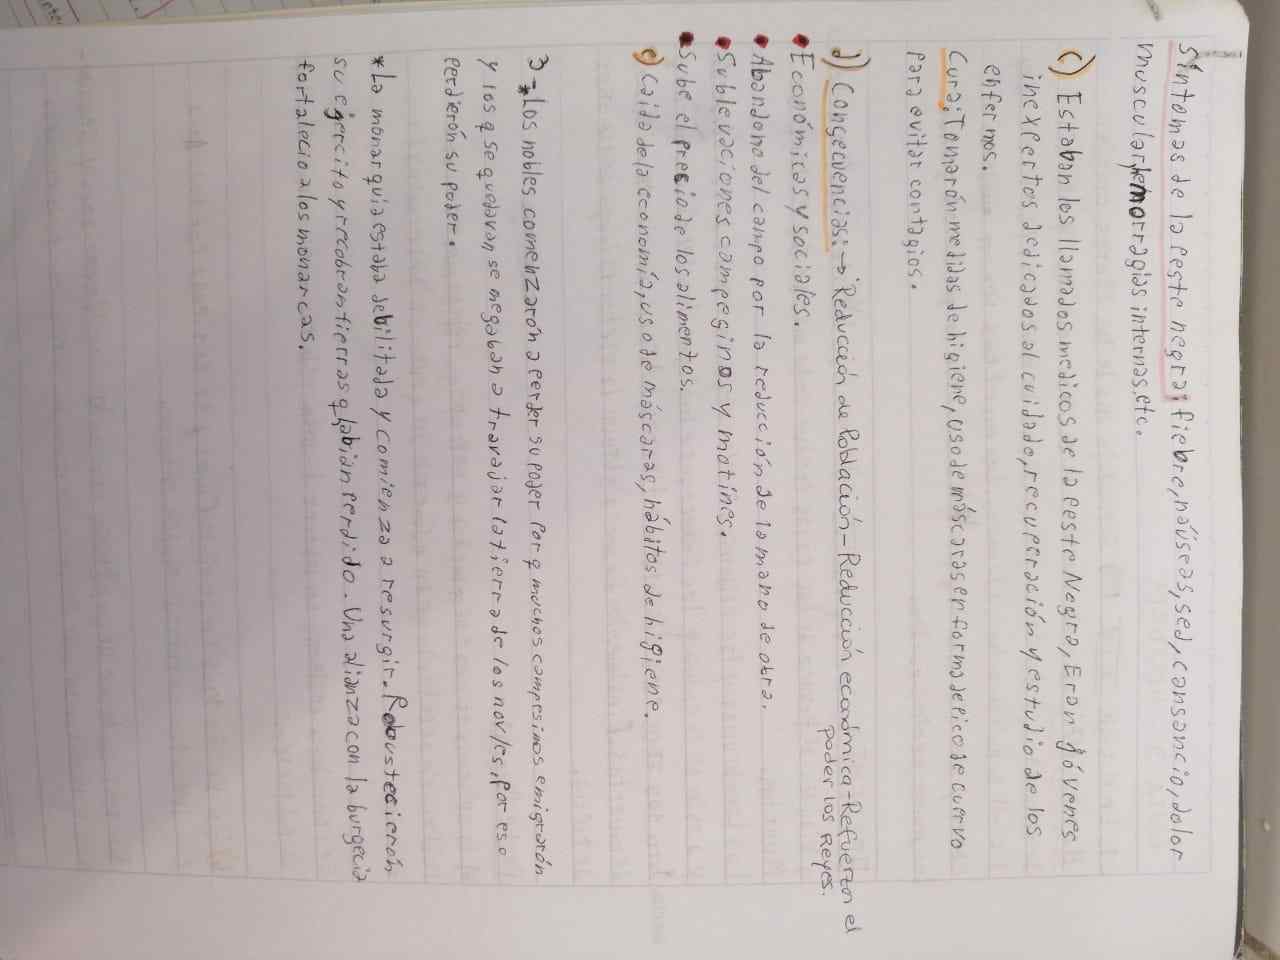 Síntomas de la peste negra: fiebre, náuseas, sed, cansancio, dolor
muscular, hemorragias internas, etc.
c) Estaban los llamados medicos de la peste Negra, Eran jóvenes
inexpertos dedicados al cuidado, recuperación y estudio de los
enfermos.
Cura: Tomarón medidas de higiene, uso de máscaras en forma de pico de cuervo
para evitar contagios.
d) Consecuencias: → Reducción de Población - Reducción económica - Refuerzan el
poder los Reyes.
• Económicas y sociales.
• Abandono del campo por la reducción de la mano de obra.
• Sublevaciones campesinas y motines.
• Sube el precio de los alimentos.
e) Caida de la economía, uso de máscaras, hábitos de higiene.
3 - *Los nobles comenzarón a perder su poder Por q muchos campesinos emigrarón
y los q se quedavan se negaban a travajar la tierra de los novles, por eso
perdierón su poder.
*La monarquia estaba debilitada y comienza a resurgir. Robustecierón
su ejercito y recobran tierras q habian perdido. Una alianza con la burgecia
fortalecio a los monarcas.